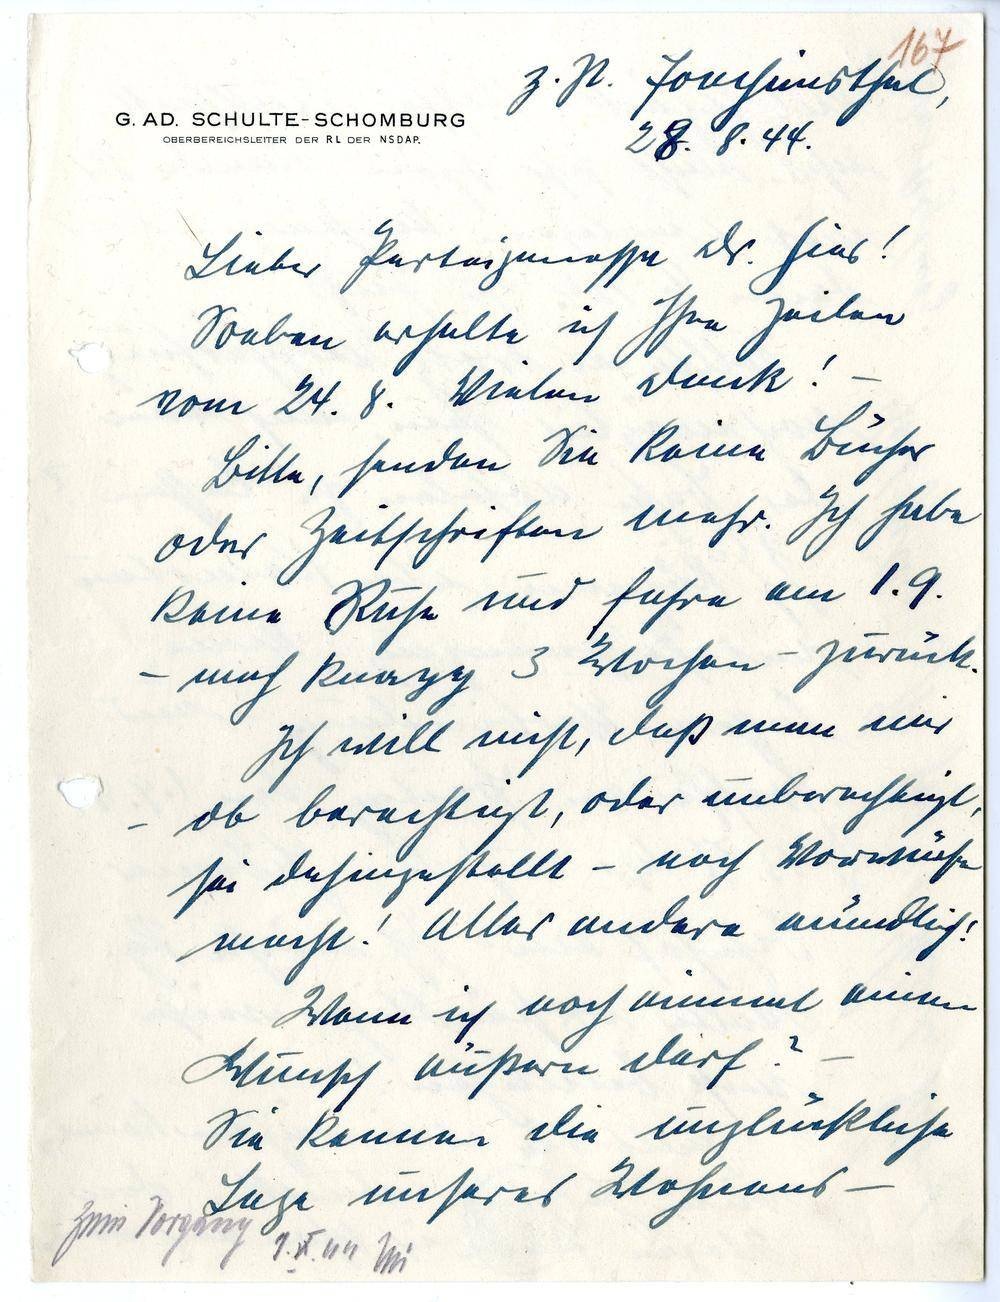 167
z. Zt. Joachimsthal,
28. 8. 44.
G. AD. SCHULTE-SCHOMBURG
OBERBEREICHSLEITER DER RL DER NSDAP.
Lieber Parteigenosse Dr.
Soeben erhalte ich Ihre Zeilen
vom 24. 8. Vielen Dank! –
Bitte, senden Sie keine Bücher
oder Zeitschriften mehr. Ich habe
keine Ruhe und fahre am 1.9.
– nach knapp 3 Wochen – zurück.
Ich will nicht, daß man mir
– ob berechtigt, oder unberechtigt,
sei dahingestellt – noch Vorwürfe
macht! Alles andere mündlich!
Wenn ich noch einmal einen
Wunsch äußern darf? –
Sie kennen die unglückliche
Lage unseres Wohnens –
Zum Vorgang